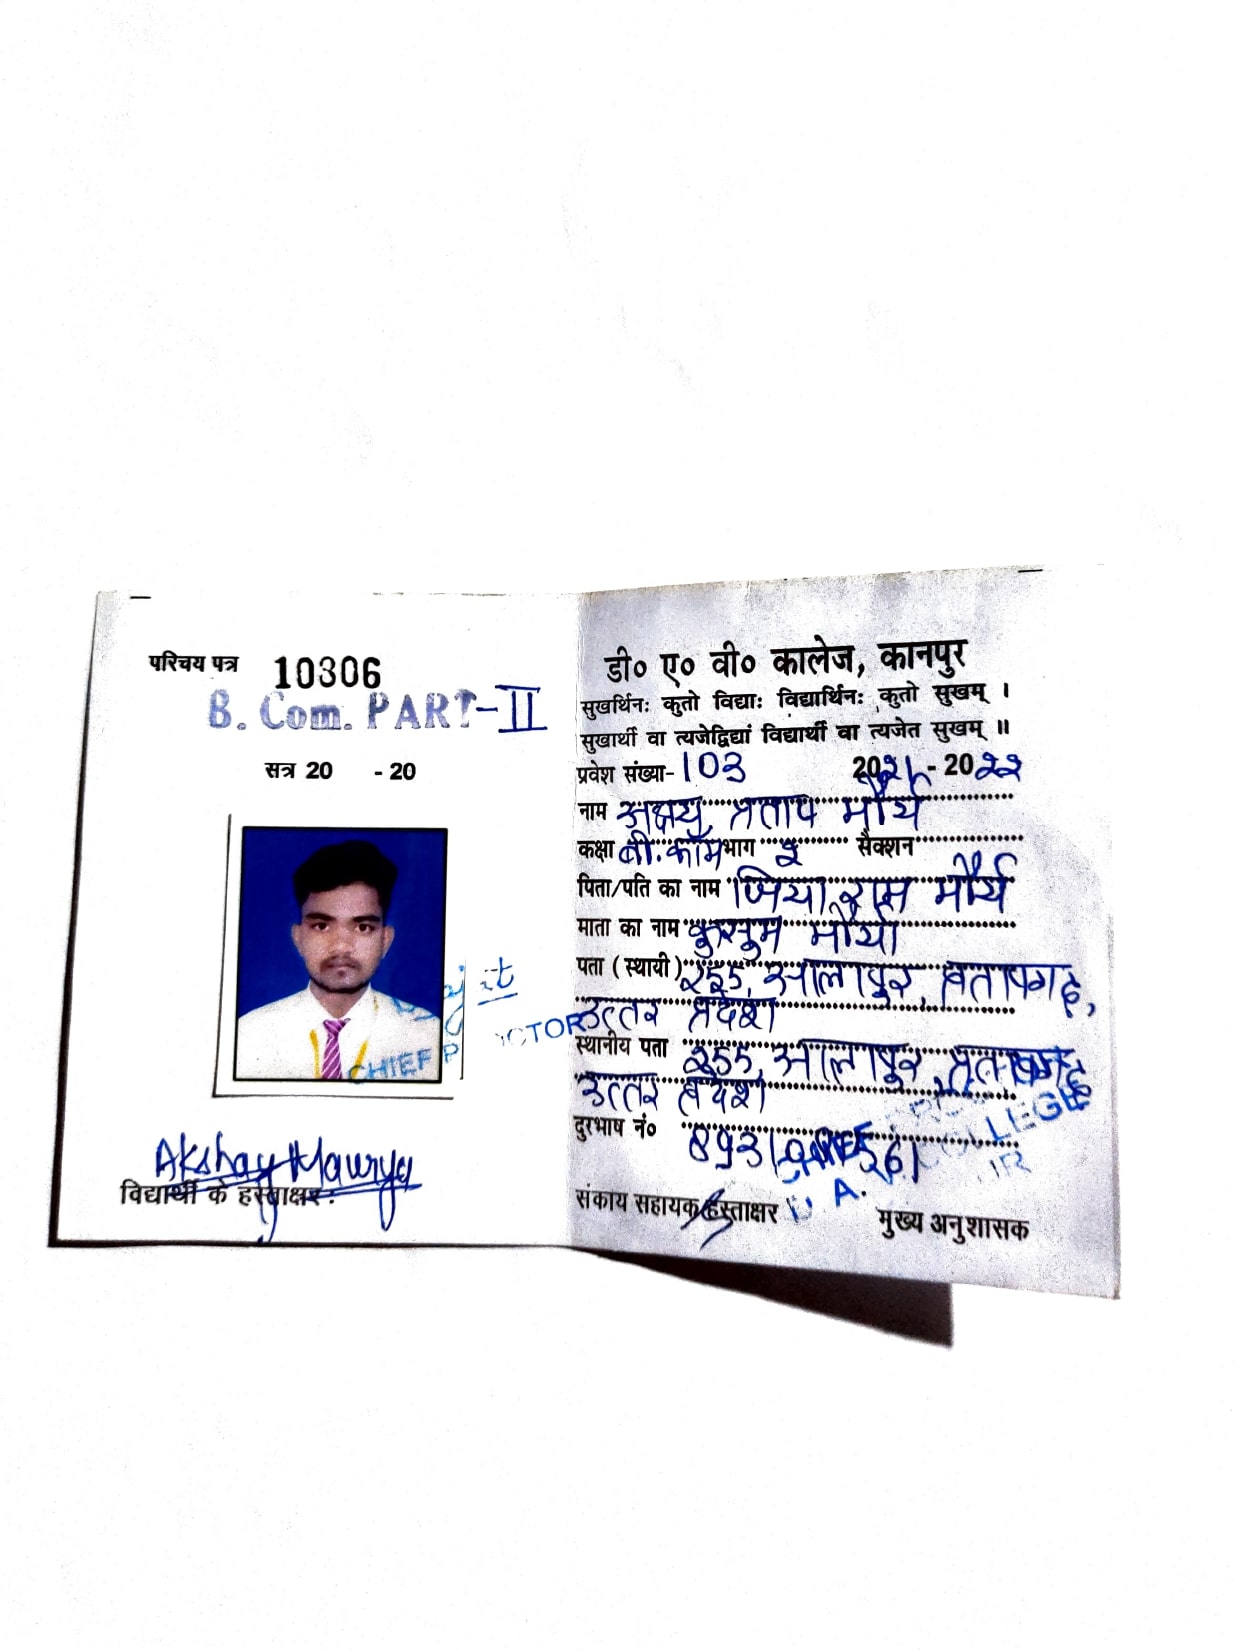 परिचय पत्र 10306
B. Com. PART-II
सत्र 20 - 20
CHIEF P CTOR
Akshay Maurya
विद्यार्थी के हस्ताक्षर :
डी० ए० वी० कालेज, कानपुर
सुखर्थिनः कुतो विद्याः विद्यार्थिनः कुतो सुखम् ।
सुखार्थी वा त्यजेद्विद्यां विद्यार्थी वा त्यजेत सुखम् ॥
प्रवेश संख्या- 103 2021 - 2022
नाम अक्षय प्रताप मौर्य
कक्षा बी.कॉम भाग 2 सैक्शन
पिता/पति का नाम सिया राम मौर्य
माता का नाम कुसुम मौर्या
पता ( स्थायी ) 255, आलापुर, प्रतापगढ़,
उत्तर प्रदेश
स्थानीय पता 255, आलापुर, प्रतापगढ़
उत्तर प्रदेश
दुरभाष नं०
COLLEGE
D. A.
संकाय सहायक हस्ताक्षर मुख्य अनुशासक